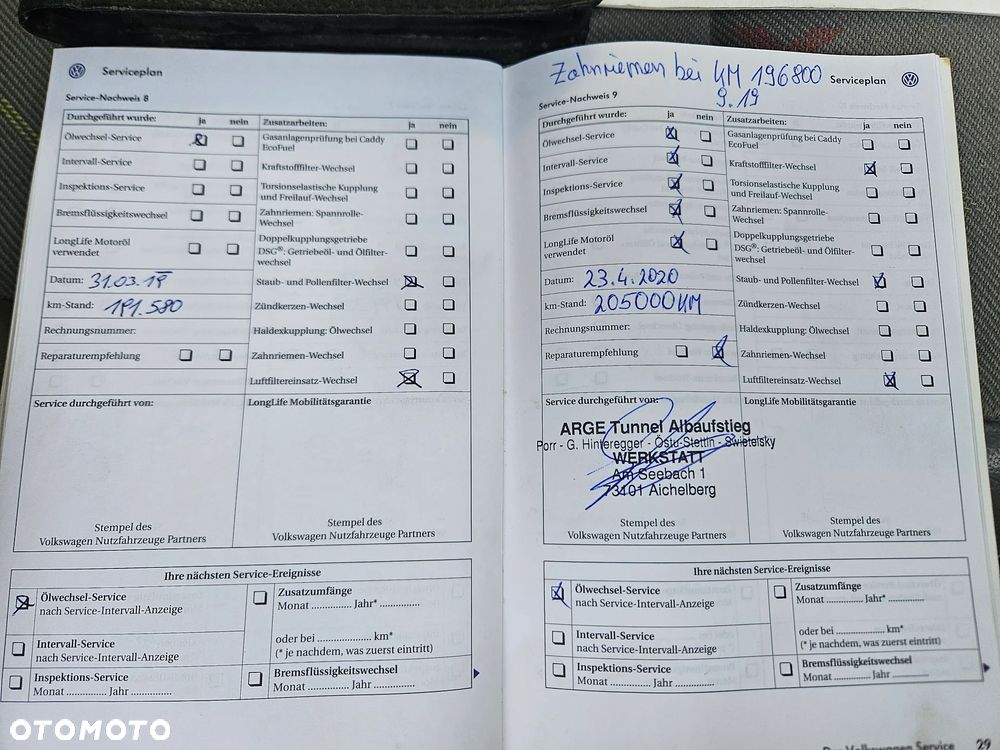 Serviceplan
Service-Nachweis 8
Durchgeführt wurde: ja nein Zusatzarbeiten: ja nein
Ölwechsel-Service
Gasanlagenprüfung bei Caddy
EcoFuel
Intervall-Service
Kraftstofffilter-Wechsel
Inspektions-Service
Torsionselastische Kupplung
und Freilauf-Wechsel
Bremsflüssigkeitswechsel
Zahnriemen: Spannrolle-
Wechsel
LongLife Motoröl
verwendet
Doppelkupplungsgetriebe
DSG®: Getriebeöl- und Ölfilter-
wechsel
Datum: 31.03.19
Staub- und Pollenfilter-Wechsel
km-Stand: 191.580
Zündkerzen-Wechsel
Rechnungsnummer:
Haldexkupplung: Ölwechsel
Reparaturempfehlung
Zahnriemen-Wechsel
Luftfiltereinsatz-Wechsel
Service durchgeführt von:
LongLife Mobilitätsgarantie
Stempel des
Volkswagen Nutzfahrzeuge Partners
Stempel des
Volkswagen Nutzfahrzeuge Partners
Ihre nächsten Service-Ereignisse
Ölwechsel-Service
nach Service-Intervall-Anzeige
Zusatzumfänge
Monat .............. Jahr* ..............
Intervall-Service
nach Service-Intervall-Anzeige
oder bei .................... km*
(* je nachdem, was zuerst eintritt)
Inspektions-Service
Monat .............. Jahr ..............
Bremsflüssigkeitswechsel
Monat .............. Jahr ..............
Zahnriemen bei KM 196800
9.19
Serviceplan
Service-Nachweis 9
Durchgeführt wurde: ja nein Zusatzarbeiten: ja nein
Ölwechsel-Service
Gasanlagenprüfung bei Caddy
EcoFuel
Intervall-Service
Kraftstofffilter-Wechsel
Inspektions-Service
Torsionselastische Kupplung
und Freilauf-Wechsel
Bremsflüssigkeitswechsel
Zahnriemen: Spannrolle-
Wechsel
LongLife Motoröl
verwendet
Doppelkupplungsgetriebe
DSG®: Getriebeöl- und Ölfilter-
wechsel
Datum: 23.4.2020
Staub- und Pollenfilter-Wechsel
km-Stand: 205000KM
Zündkerzen-Wechsel
Rechnungsnummer:
Haldexkupplung: Ölwechsel
Reparaturempfehlung
Zahnriemen-Wechsel
Luftfiltereinsatz-Wechsel
Service durchgeführt von:
LongLife Mobilitätsgarantie
ARGE Tunnel Albaufstieg
Porr - G. Hinteregger - Östu-Stettin - Swietelsky
WERKSTATT
Am Seebach 1
73101 Aichelberg
Stempel des
Volkswagen Nutzfahrzeuge Partners
Stempel des
Volkswagen Nutzfahrzeuge Partners
Ihre nächsten Service-Ereignisse
Ölwechsel-Service
nach Service-Intervall-Anzeige
Zusatzumfänge
Monat .............. Jahr* ..............
Intervall-Service
nach Service-Intervall-Anzeige
oder bei .................... km*
(* je nachdem, was zuerst eintritt)
Inspektions-Service
Monat .............. Jahr ..............
Bremsflüssigkeitswechsel
Monat .............. Jahr ..............
Der Volkswagen Service 29
OTOMOTO